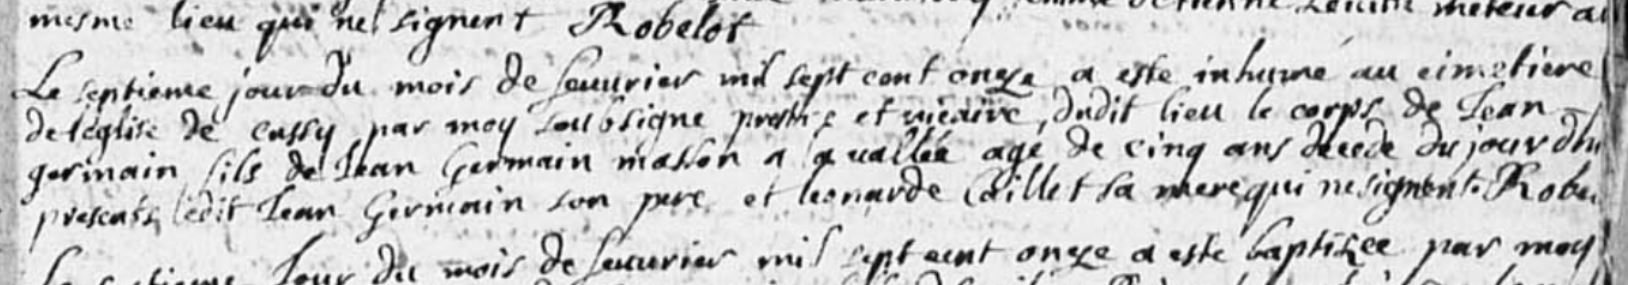 meteur au
mesme lieu qui ne signent Robelot
Le septieme jour du mois de feuurier mil sept cent onze a este inhumé au cimetiere
de leglise de cussy par moy soubsigne prestre et vicaire dudit lieu le corps de Jean
germain fils de Jean Germain masson a la vallée agé de cinq ans decede du jour dhu
presents ledit Jean Germain son pere et leonarde Caillet sa mere qui ne signent. Robe
septieme Jour du mois de feuurier mil sept cent onze a este baptizee par moy